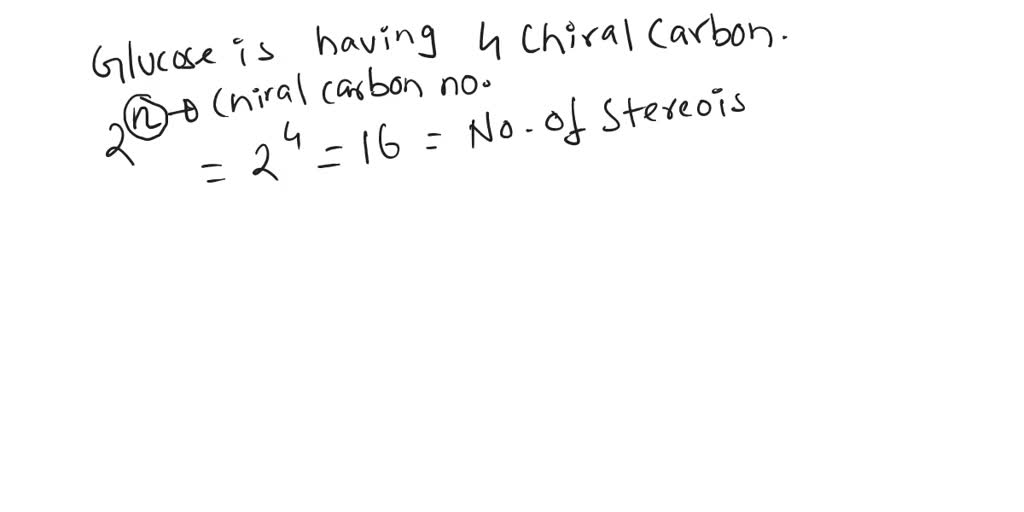 Glucose is having 4 Chiral Carbon.
2^n → Chiral carbon no.
= 2^4 = 16 = No. of Stereois